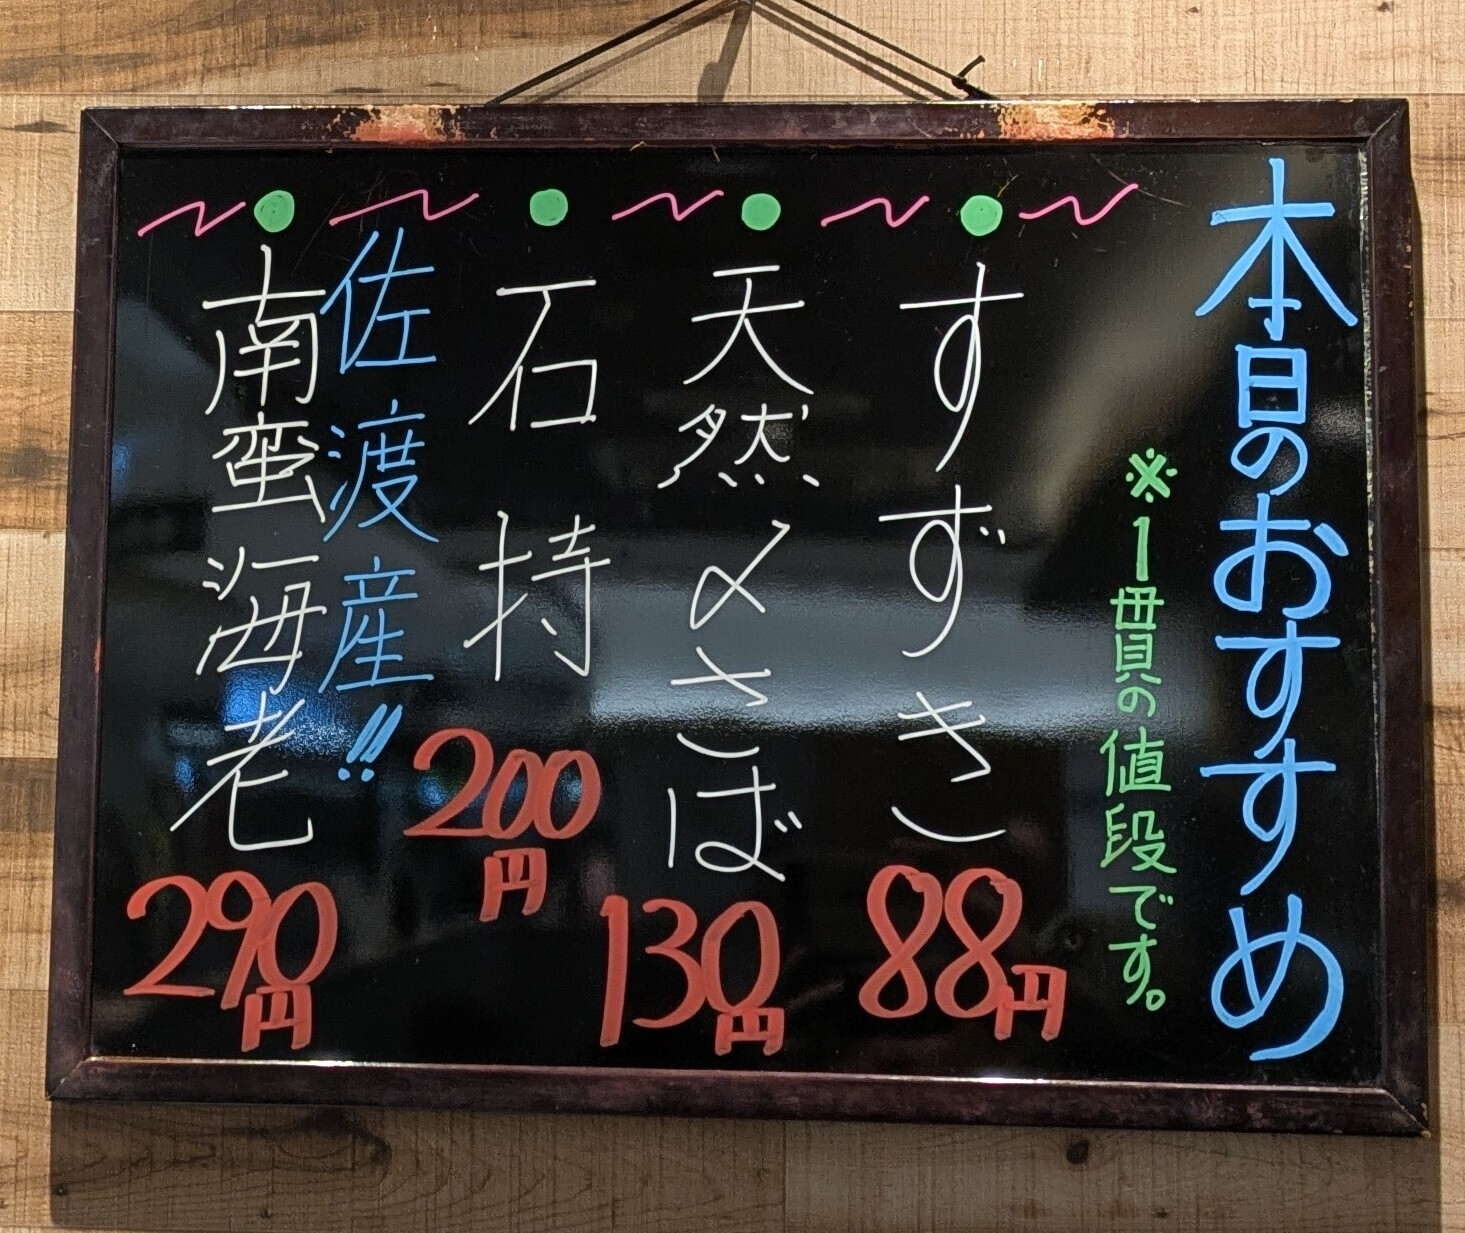 本日のおすすめ
※1貫の値段です。
すずき
88円
天然〆さば
130円
石持
200円
佐渡産!!
南蛮海老
290円